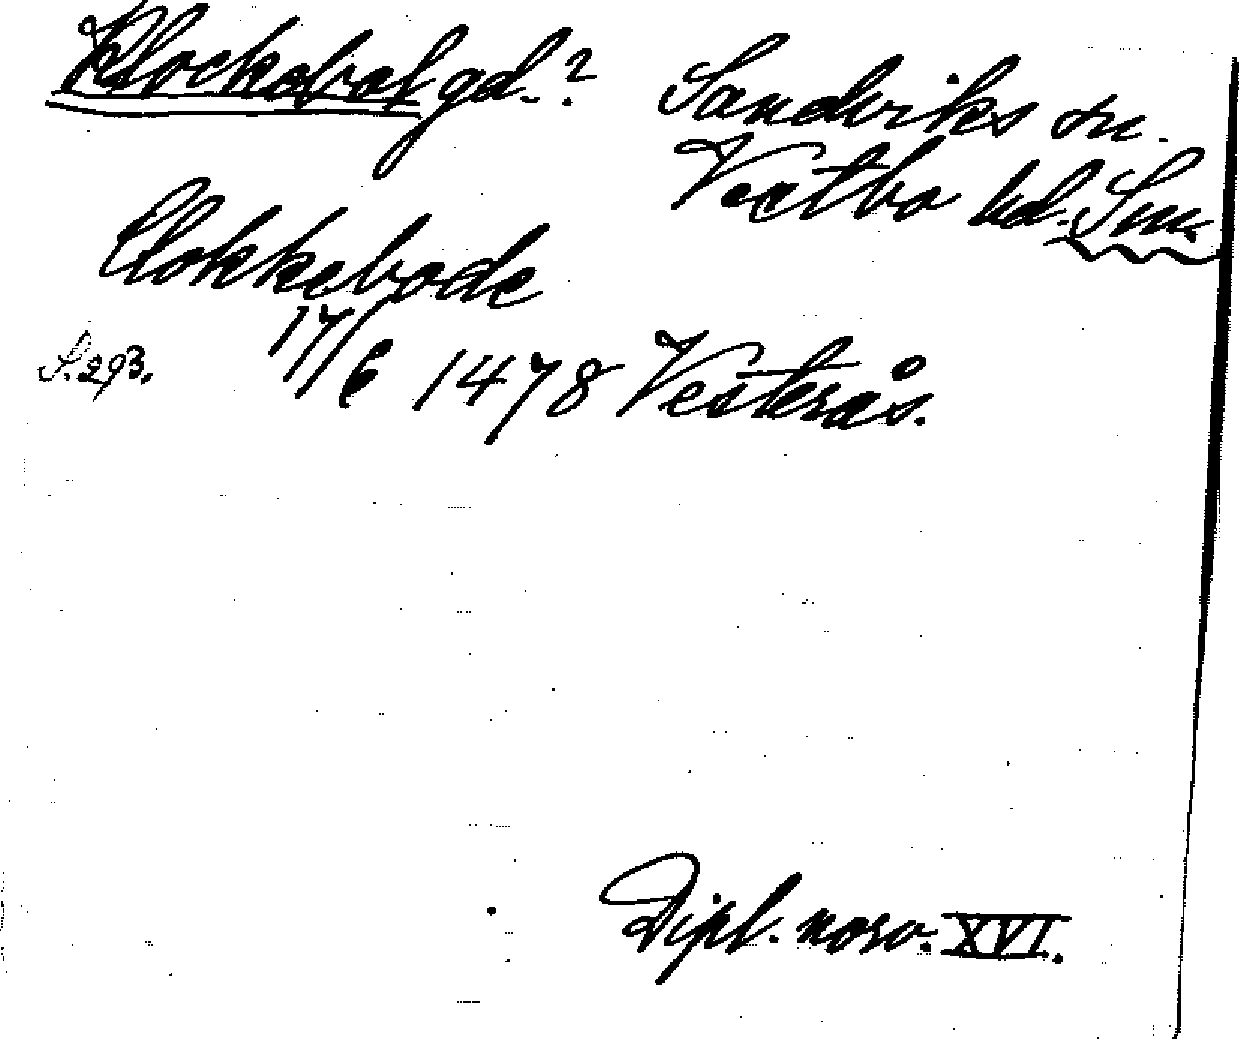 Klockabol gd.? Sandviks sn.
Vestbo hd. Sm.
Clokkebode
S. 293. 17/6 1478 Vesterås.
Dipl. norv. XVI.